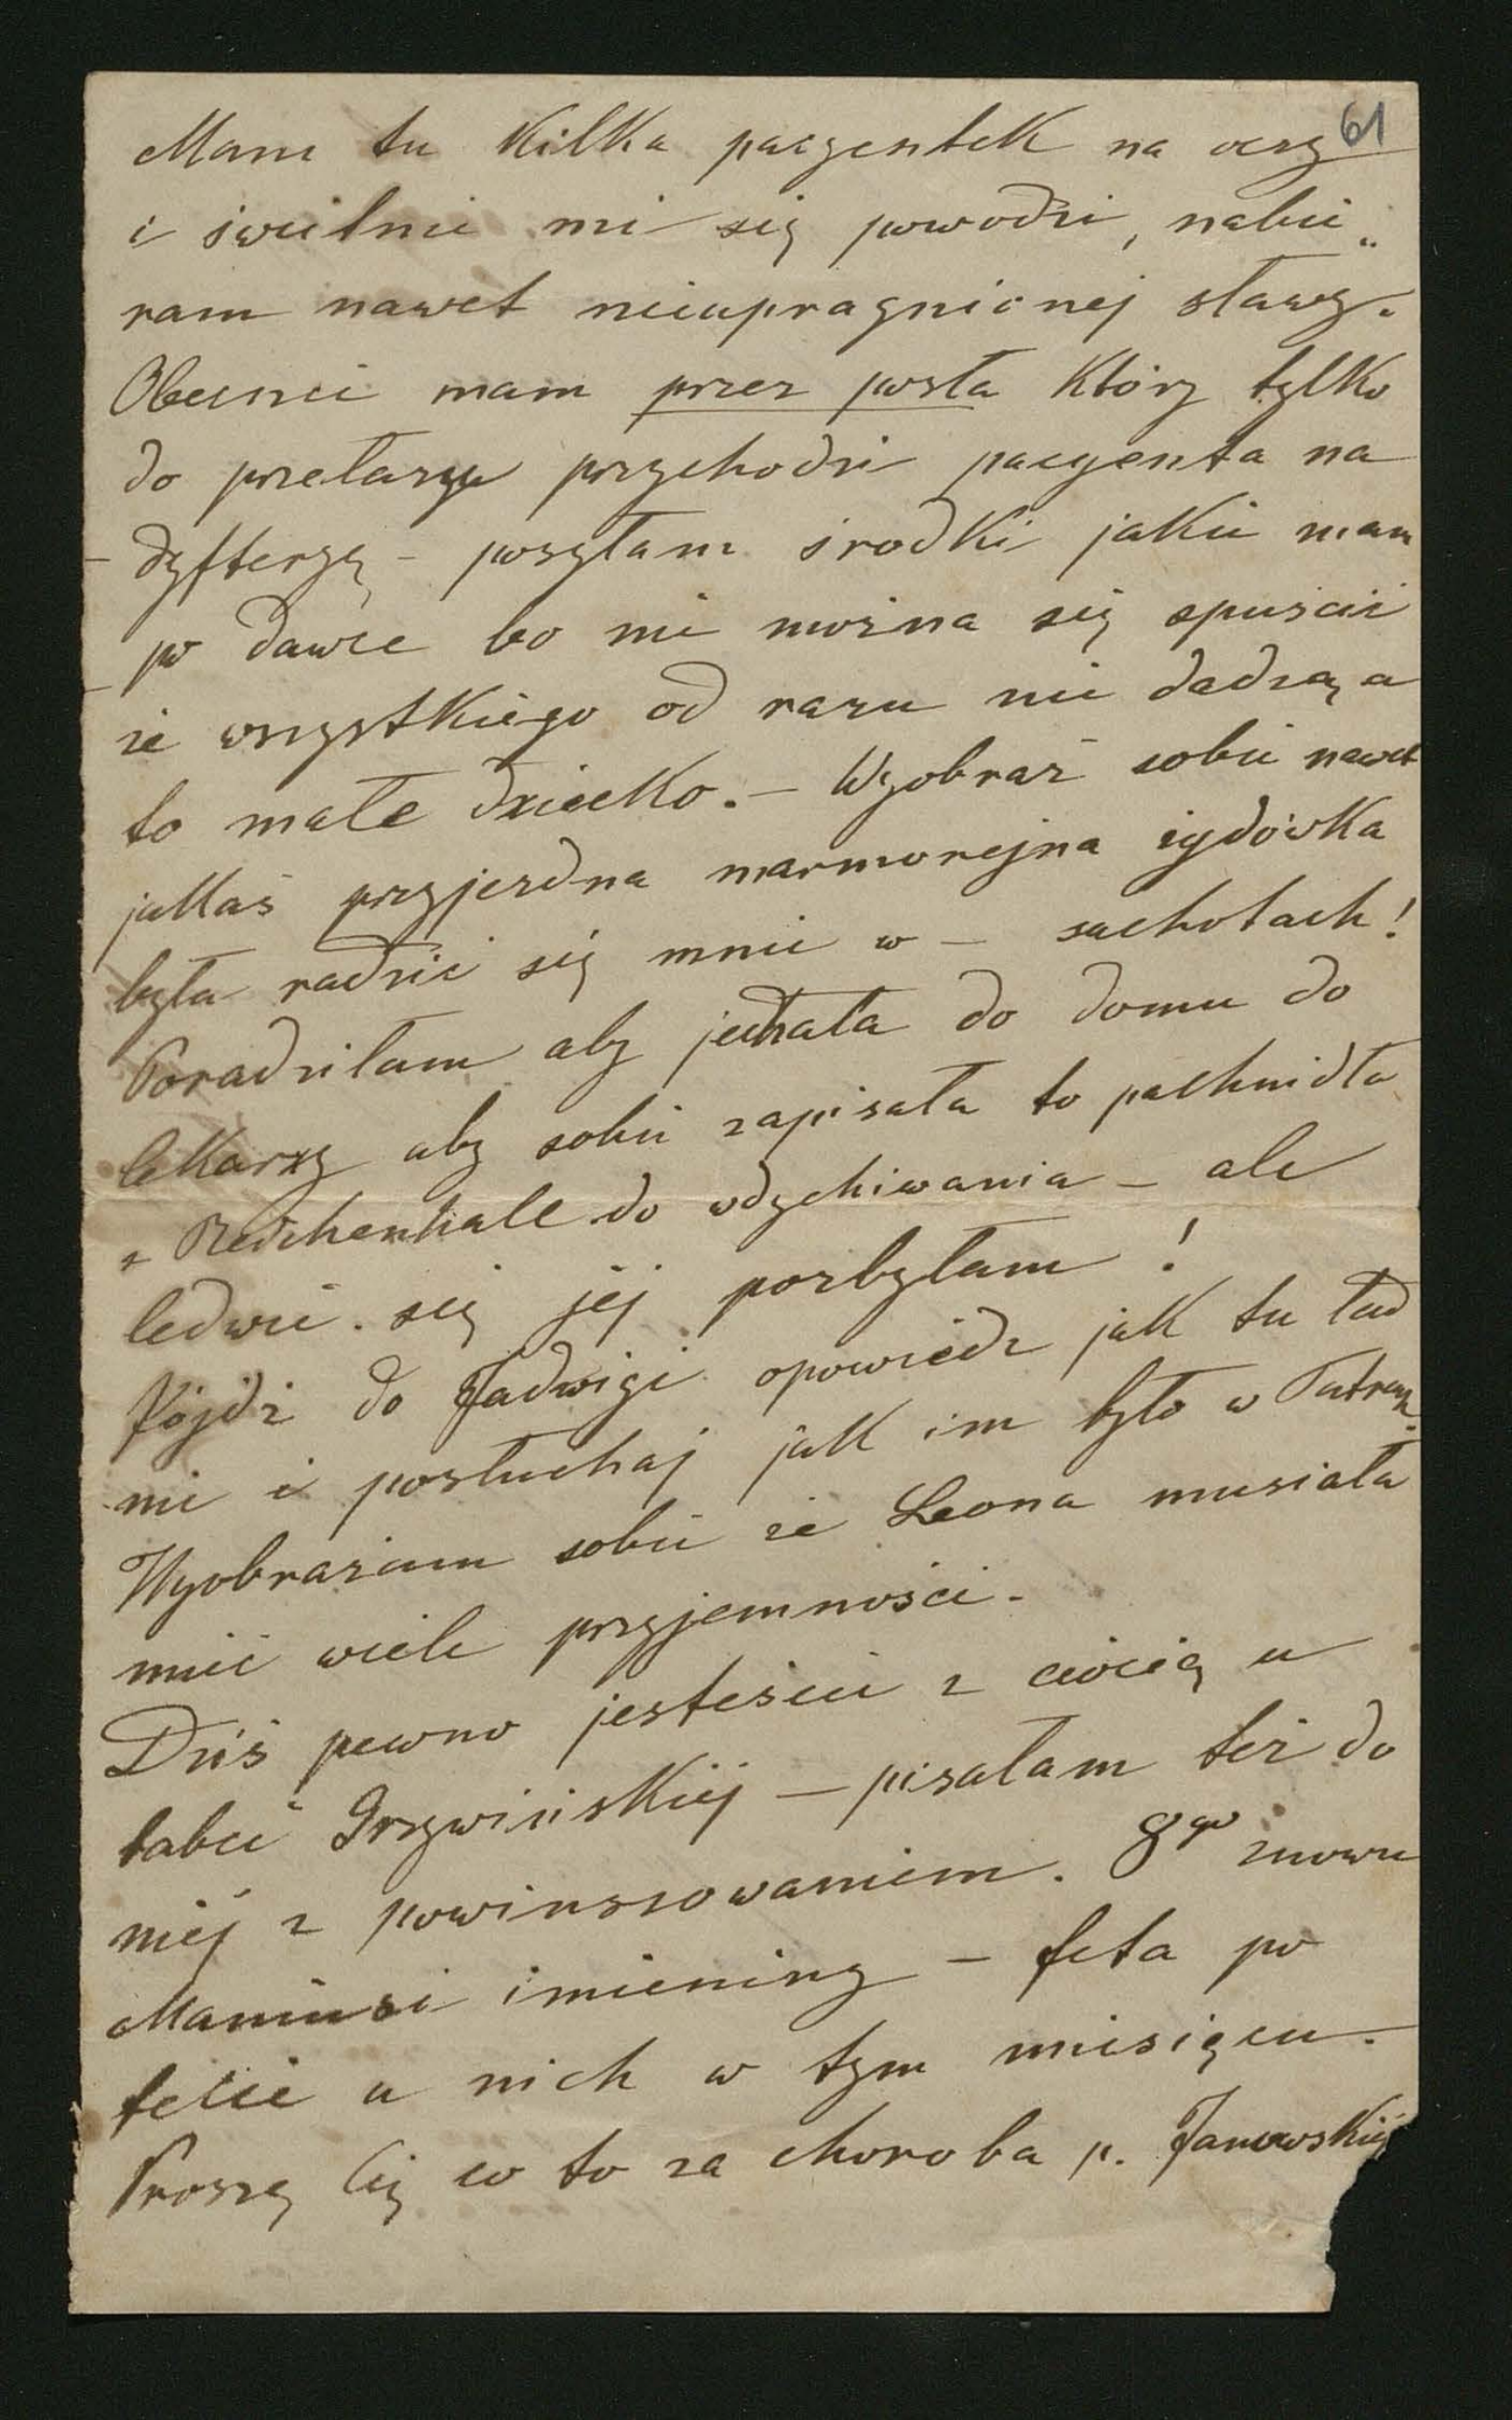 61
Mam tu kilka pacyentek na oczy
i świetnie mi się powodzi, nabie„
ram nawet nieupragnionej sławy.
Obecnie mam przez posła który tylko
do przełazu przychodzi pacyenta na
– dyfteryę – posyłam środki jakie mam
po dawce bo nie można się spuścić
że wszystkiego od razu nie dadzą a
to małe dziecko. – Wyobraź sobie nawet
jakaś przyjezdna marmorejna żydówka
była radzić się mnie w – suchotach!
Poradziłam aby jechała do domu do
lekarzy aby sobie zapisała to pachnidło
z Reichenhall do wdychiwania – ale
ledwie się jej pozbyłam!
Pójdź do Jadwigi opowiedz jak tu ład
nie i posłuchaj jak im było w Tatrach.
Wyobrażam sobie że Leona musiała
mieć wiele przyjemności.
Dziś pewno jesteście z ciocią u
babci Grzywińskiej – pisałam też do
niej z powinszowaniem. 8go znowu
Maniusi imieniny – feta po
fecie u nich w tym miesiącu.
Proszę Cię co to za choroba p. Janowskiej